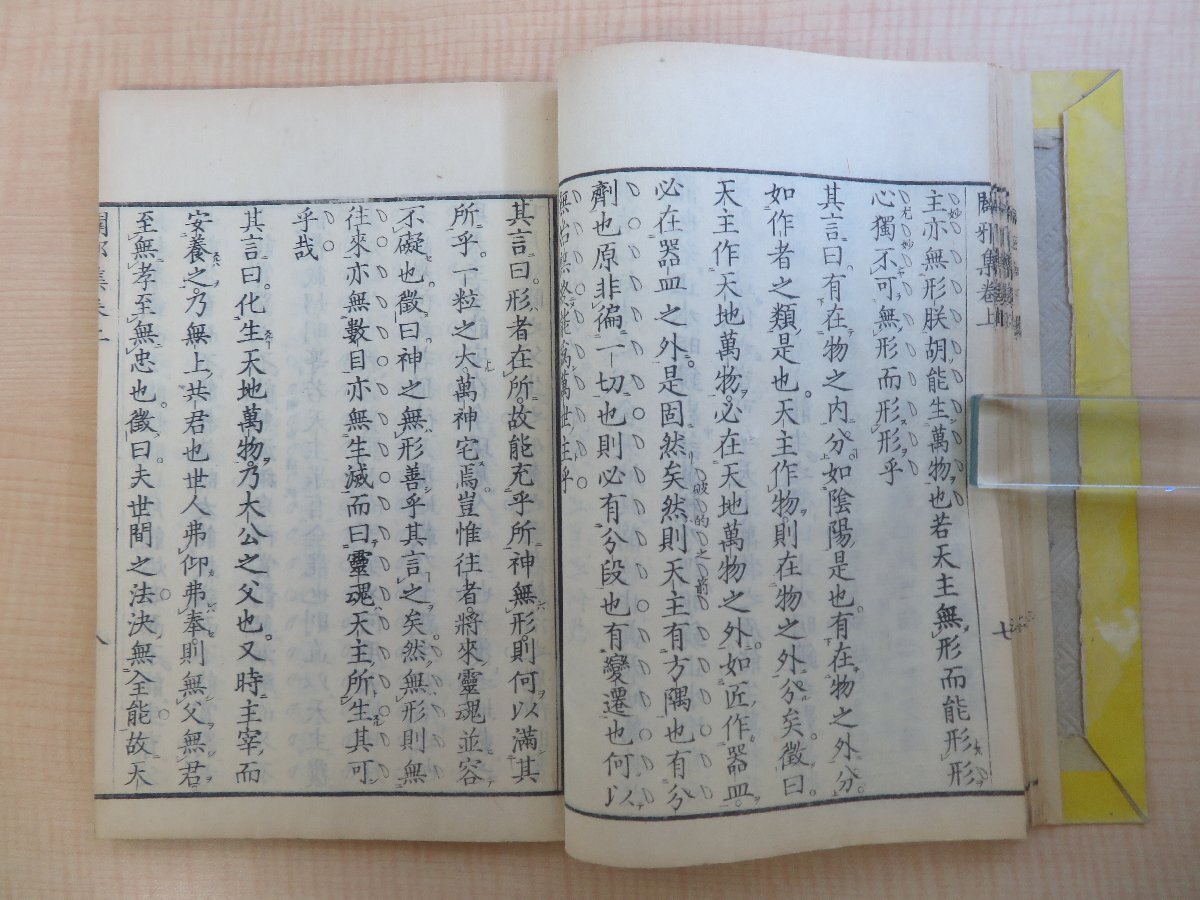 闢邪集卷上
七
主亦無形朕胡能生萬物也若天主無形而能形形
妙
心獨不可無形而形形乎
尤妙
其言曰有在物之內分如陰陽是也有在物之外分
如作者之類是也天主作物則在物之外分矣徵曰
天主作天地萬物必在天地萬物之外如匠作器皿
必在器皿之外是固然矣然則天主有方隅也有分
破的之前
劑也原非徧一切也則必有分段也有變遷也何以
無始無終能萬萬世主乎
其言曰形者在所故能充乎所神無形則何以滿其
所乎一粒之大萬神宅焉豈惟往者將來靈魂並容
不礙也徵曰神之無形善乎其言之矣然無形則無
往來亦無數目亦無生滅而曰靈魂天主所生其可
乎哉
其言曰化生天地萬物乃大公之父也又時主宰而
安養之乃無上共君也世人弗仰弗奉則無父無君
至無孝至無忠也徵曰夫世間之法決無全能故天
八